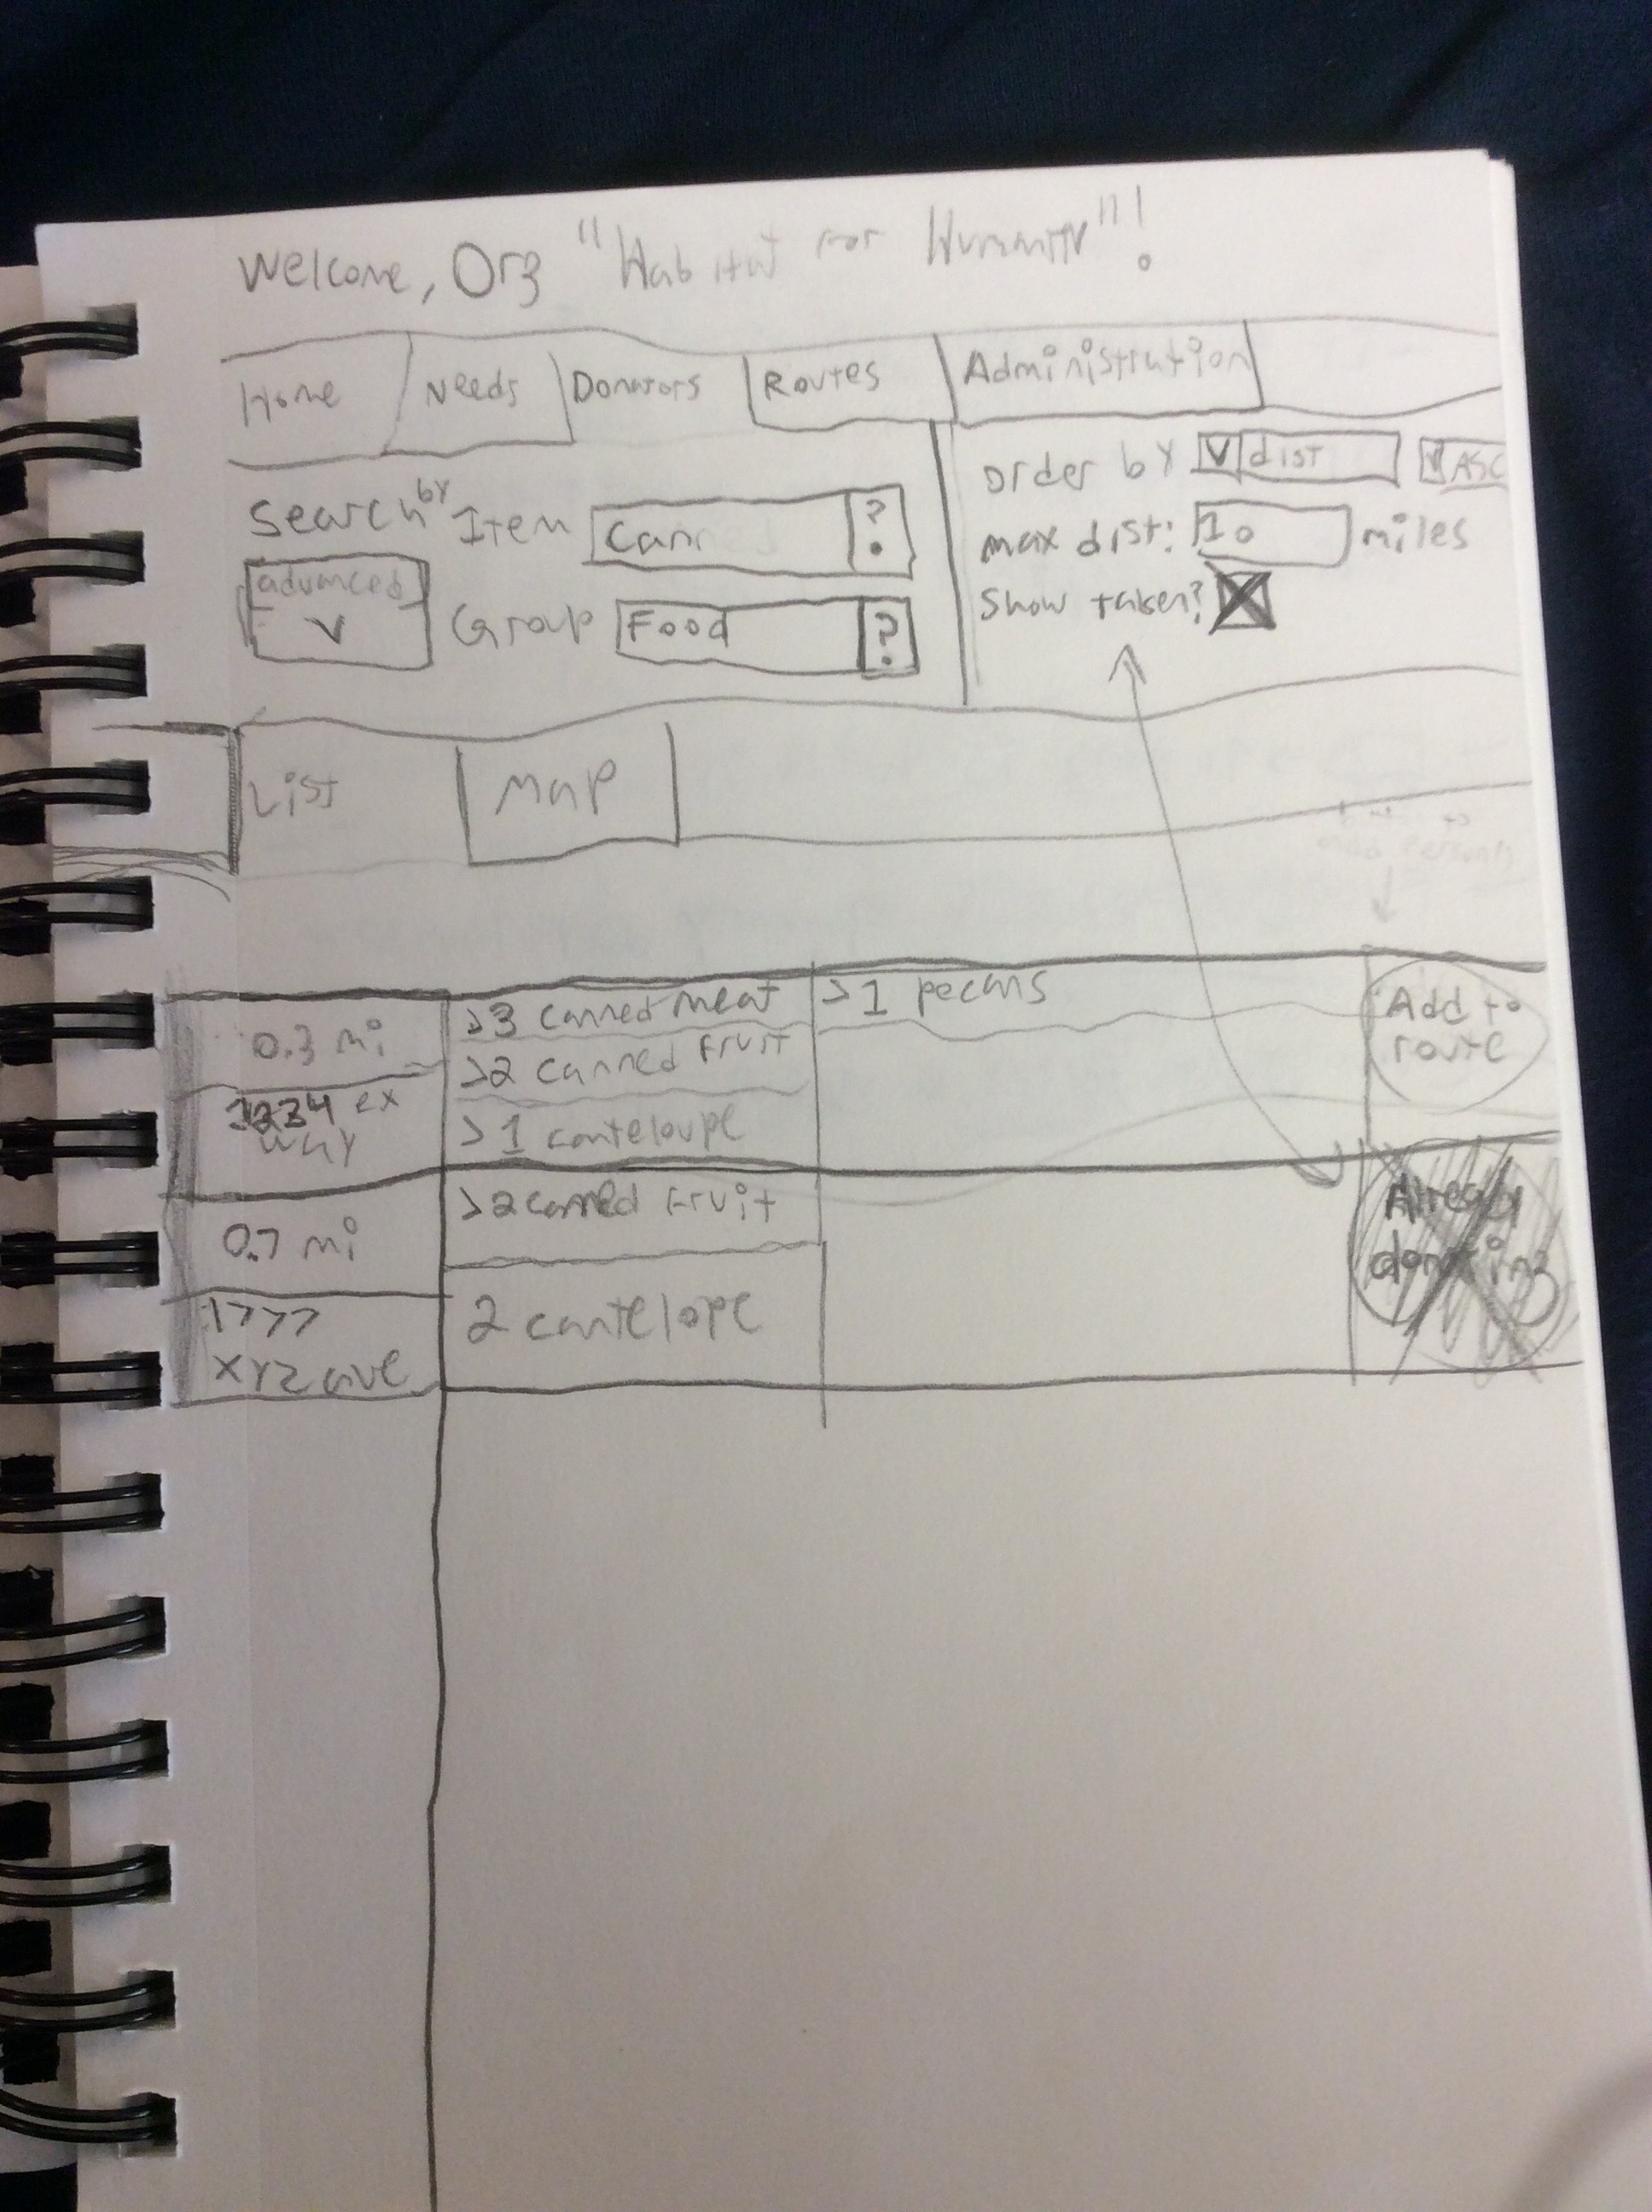 Welcome, Org "Habitat for Humanity"!
Home Needs Donators Routes Administration
Search by Item Can ?
advanced V
Group Food ?
Order by V dist V ASC
max dist: 10 miles
Show taken? X
List Map
0.3 mi
1234 ex way
>3 canned meat
>2 canned fruit
>1 canteloupe
>1 pecans
Add to route
0.7 mi
1777
XYZ ave
>2 canned fruit
2 cantelope
Already donating